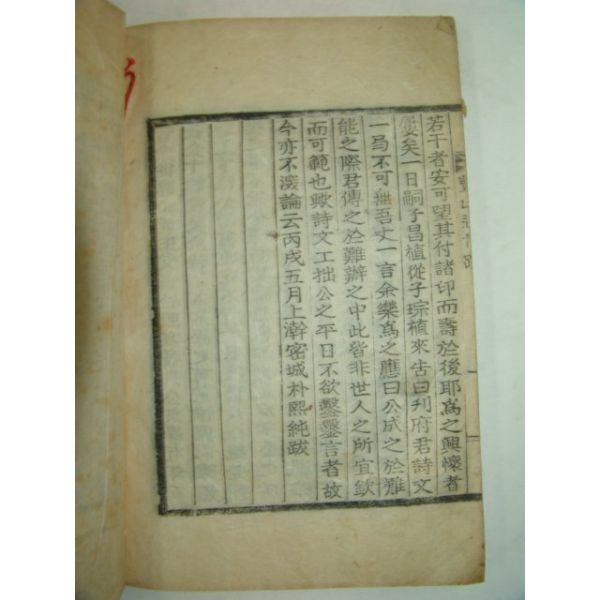 若干者安可望其付諸印而壽於後耶爲之興懷者
屢矣一日嗣子昌植從子琮植來告曰刊府君詩文
一局不可無吾丈一言余樂爲之應曰公成之於難
能之際君傳之於難辦之中此皆非世人之所宜欽
而可範也歟詩文工拙公之平日不欲鑿鑿言者故
今亦不淺論云丙戌五月上澣密城朴熙純跋